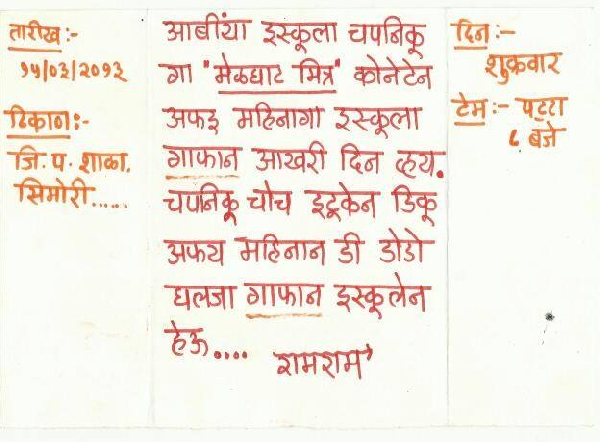 तारीख :-
१५/०३/२०१३
ठिकाण:-
जि. प. शाळा.
सिमोरी.....
आबींया इस्कूला चपनिकू
गा "मेळघाट मित्र" कोनेटेन
अफइ महिनागा इस्कूला
गाफान आखरी दिन व्हय.
चपनिकू चोच इटूकेन डिकू
अफय महिनान डी डोडो
घलजा गाफान इस्कूलेन
हेऊ....
रामराम
दिन :-
शुक्रवार
टेम :- पट्टा
८ बजे